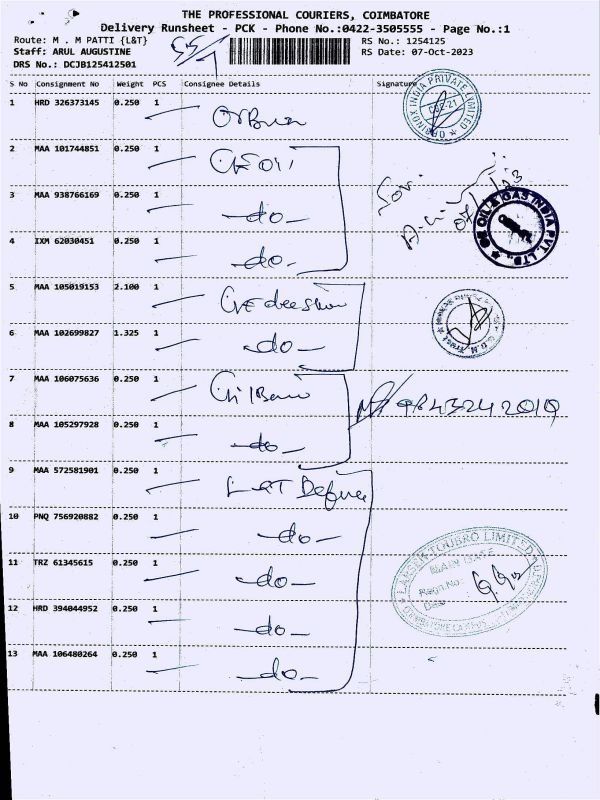 THE PROFESSIONAL COURIERS, COIMBATORE
Delivery Runsheet - PCK - Phone No.:0422-3505555 - Page No.:1
Route: M . M PATTI {L&T}
RS No.: 1254125
Staff: ARUL AUGUSTINE
RS Date: 07-Oct-2023
DRS No.: DCJB125412501
S No Consignment No Weight PCS Consignee Details Signature
1 HRD 326373145 0.250 1
2 MAA 101744851 0.250 1
3 MAA 938766169 0.250 1 -do-
4 IXM 62030451 0.250 1 -do-
5 MAA 105019153 2.100 1
6 MAA 102699827 1.325 1 -do-
7 MAA 106075636 0.250 1
9843242019
8 MAA 105297928 0.250 1 -do-
9 MAA 572581901 0.250 1 L&T Defence
10 PNQ 756920882 0.250 1 -do-
11 TRZ 61345615 0.250 1 -do-
12 HRD 394044952 0.250 1 -do-
13 MAA 106480264 0.250 1 -do-
OIL & GAS INDIA PVT. LTD.
LARSEN & TOUBRO LIMITED
MAIN GATE
Regn.No
Date